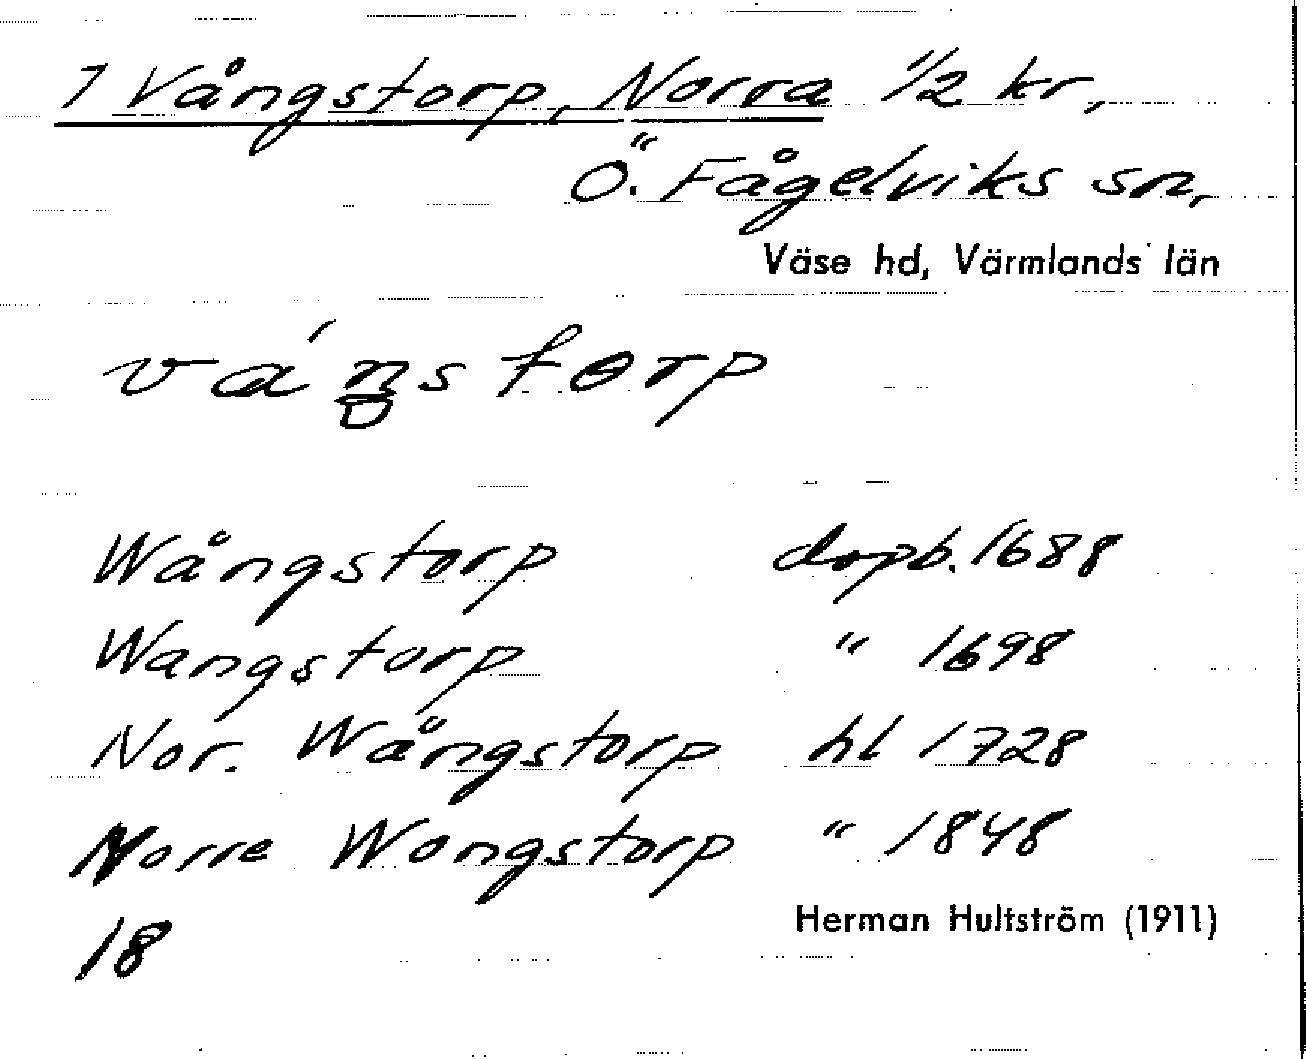 7 Vångstorp, Norra 1/2 kr,
Ö. Fågelviks sn,
Väse hd, Värmlands län
Wångstorp dopb. 1688
Wangstorp " 1698
Nor. Wångstorp hl 1728
Norre Wongstorp " 1848
18 Herman Hultström (1911)